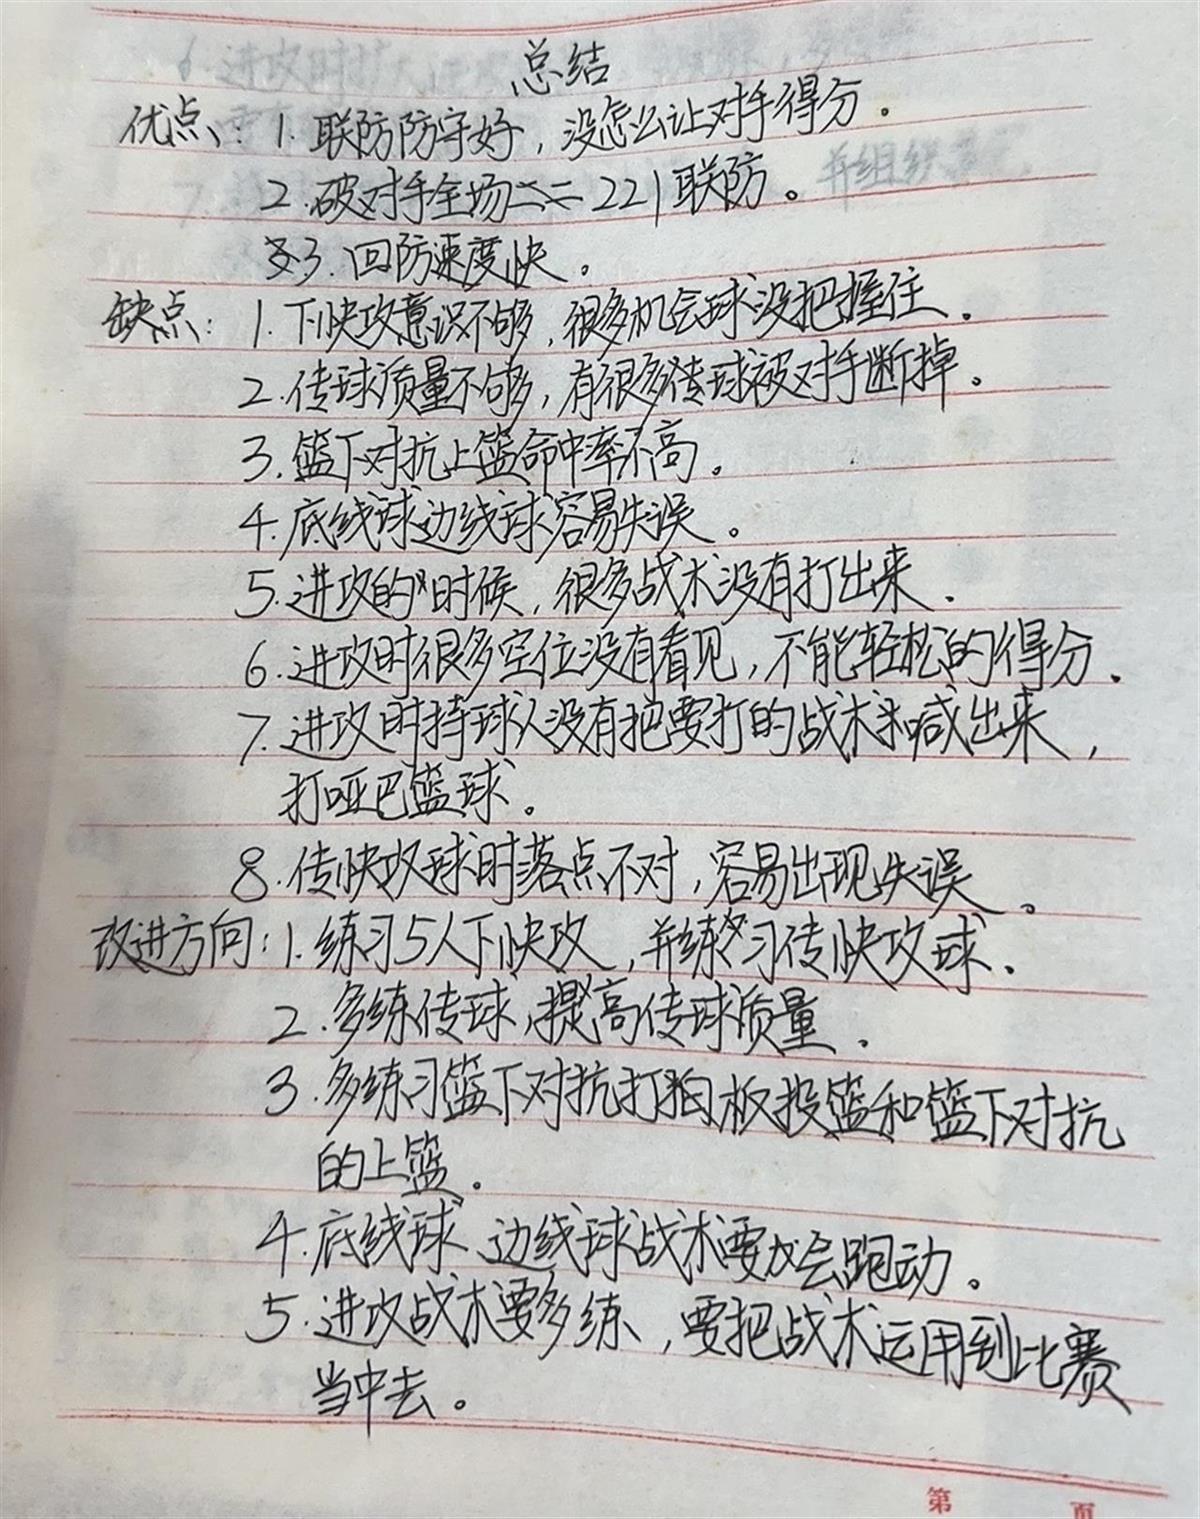 总结
优点：1.联防防守好，没怎么让对手得分。
2.破对手全场二二221联防。
3.回防速度快。
缺点：1.下快攻意识不够，很多机会球没把握住。
2.传球质量不够，有很多传球被对手断掉。
3.篮下对抗上篮命中率不高。
4.底线球边线球容易失误。
5.进攻的时候，很多战术没有打出来.
6.进攻时很多空位没有看见，不能轻松的得分.
7.进攻时持球人没有把要打的战术喊出来，
打哑巴篮球。
8.传快攻球时落点不对，容易出现失误。
改进方向：1.练习5人下快攻，并练习传快攻球.
2.多练传球，提高传球质量.
3.多练习篮下对抗打板投篮和篮下对抗
的上篮.
4.底线球、边线球战术要会跑动。
5.进攻战术要多练，要把战术运用到比赛
当中去。
第 页